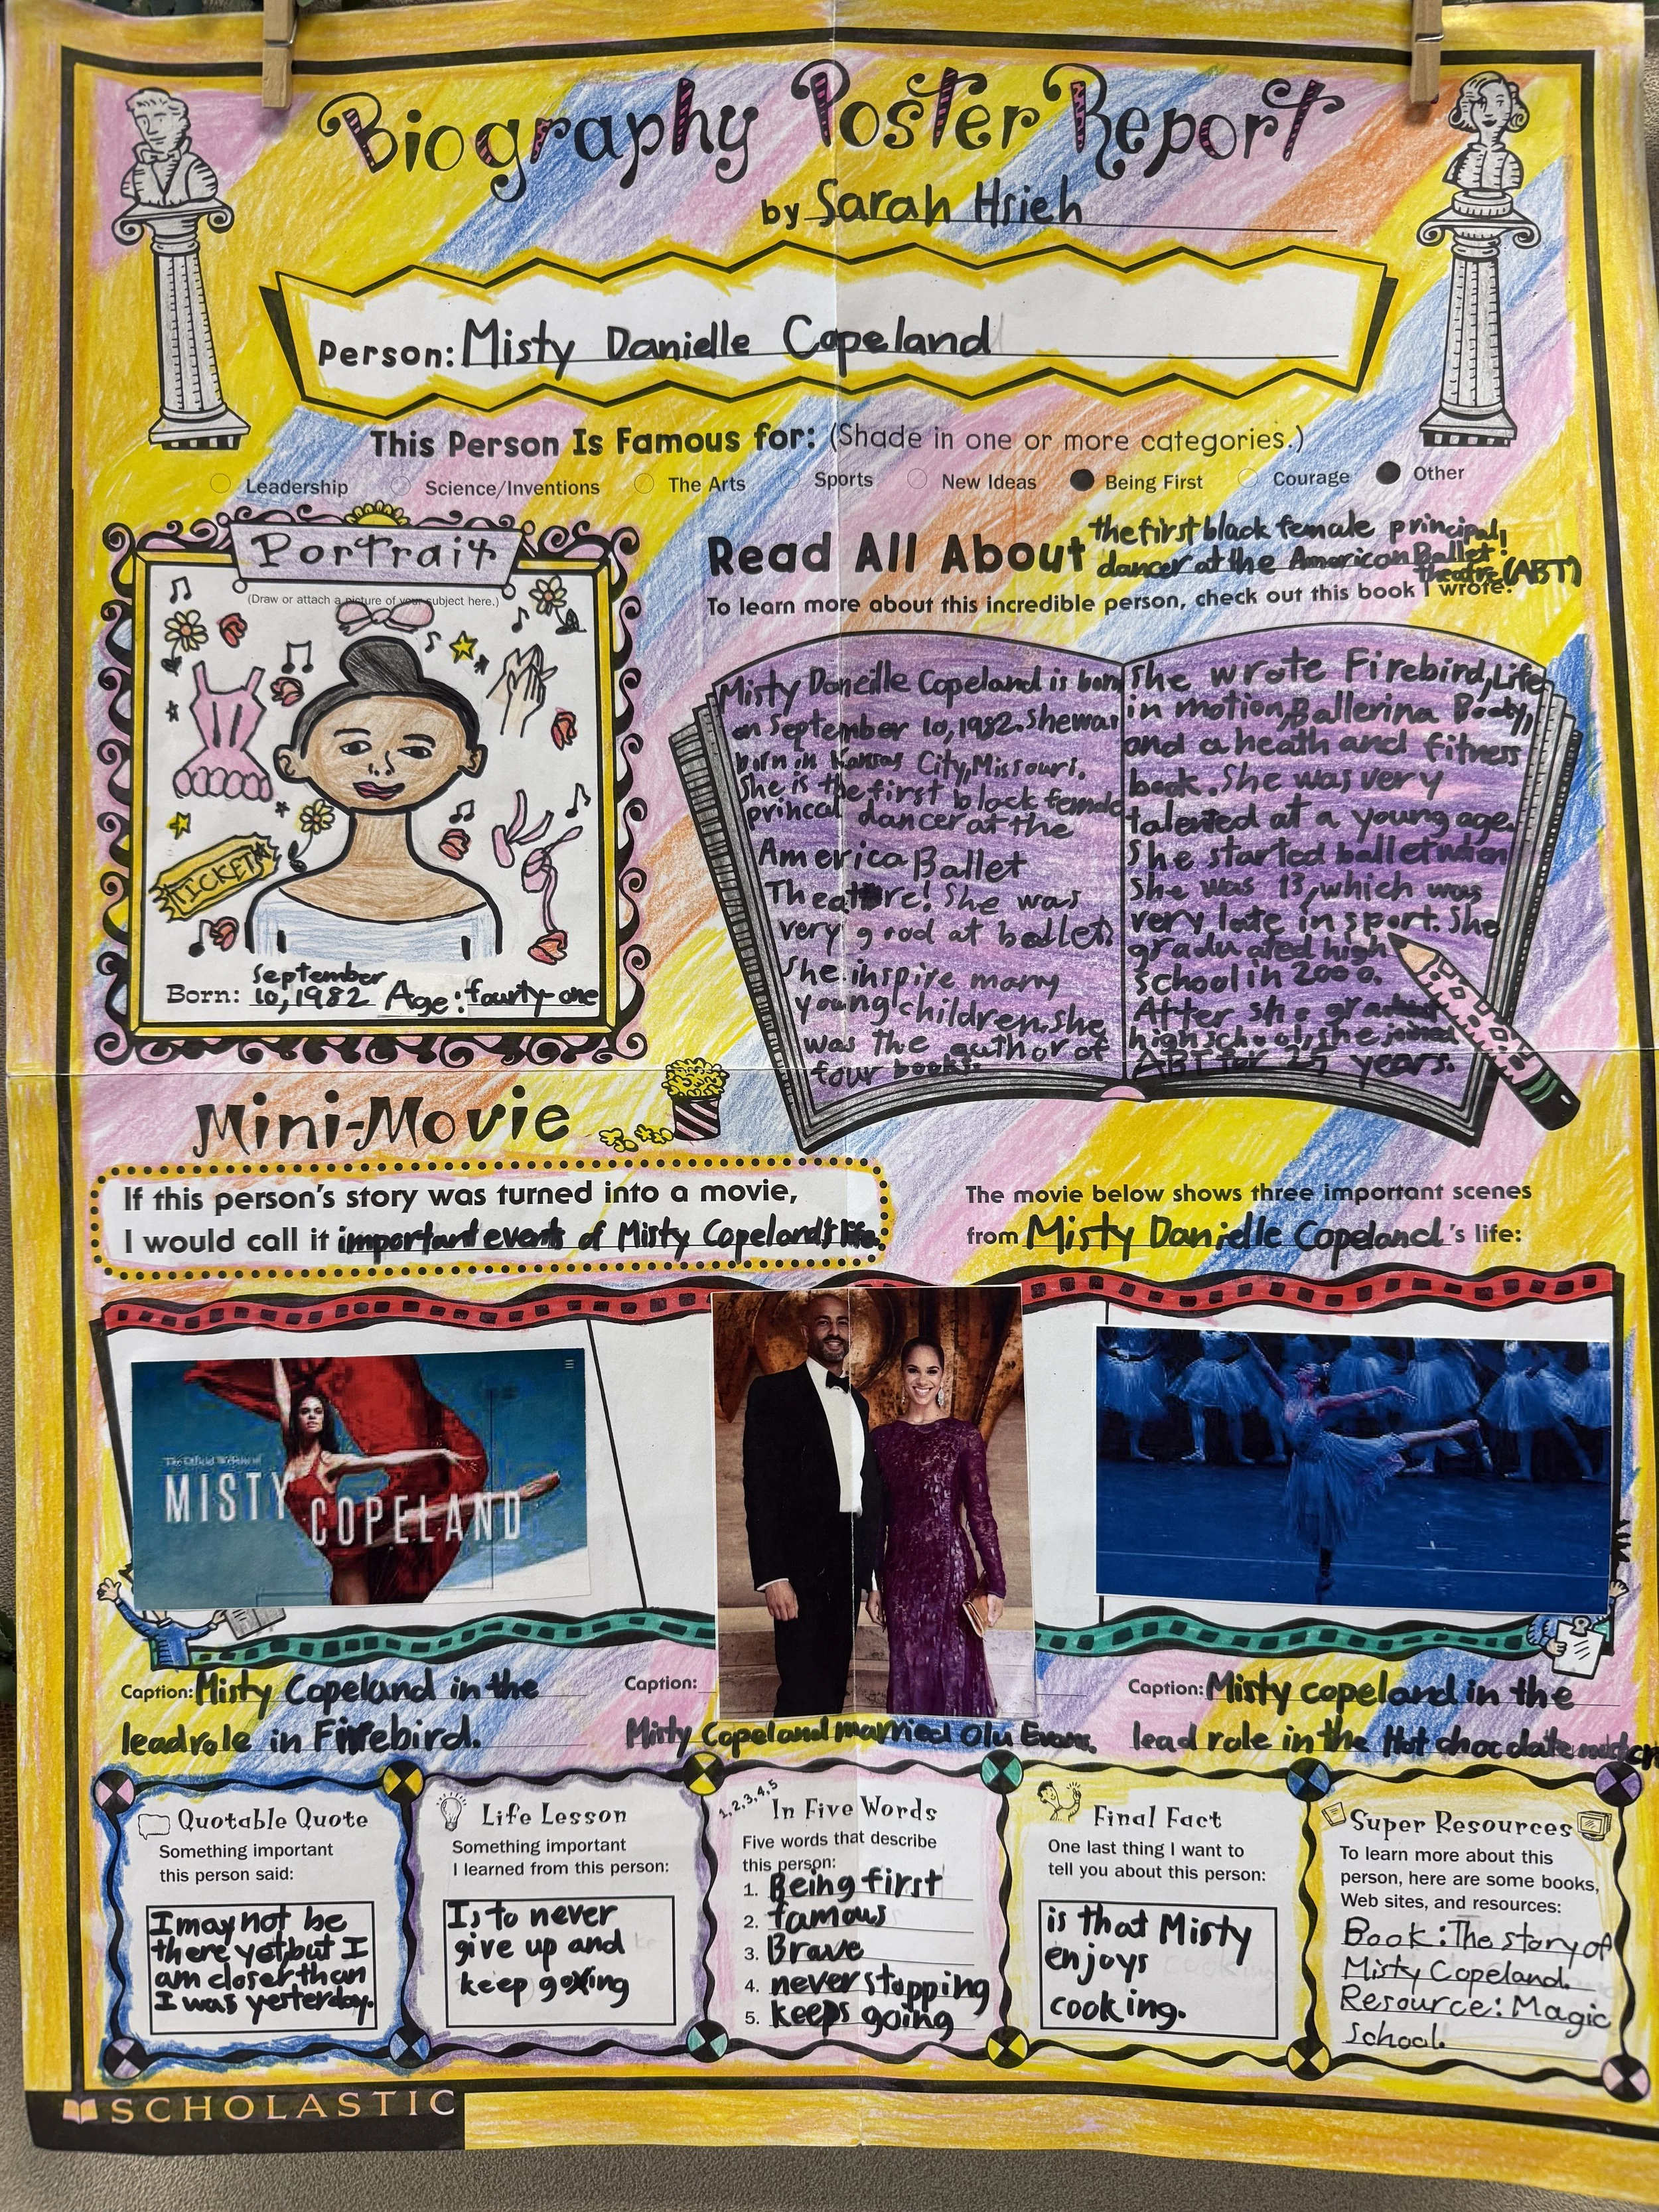 Biography Poster Report
by Sarah Hsieh
Person: Misty Danielle Copeland
This Person Is Famous for: (Shade in one or more categories.)
Leadership Science/Inventions The Arts Sports New Ideas Being First Courage Other
Portrait
(Draw or attach a picture of your subject here.)
TICKET
Born: September
10, 1982 Age: fourty-one
Read All About the first black female principal
dancer at the American Ballet!
Theatre (ABT)
To learn more about this incredible person, check out this book I wrote.
Misty Daneille Copeland is born
on September 10, 1982. She was
born in Kansas City, Missouri.
She is the first black female
princal dancer at the
America Ballet
Theatre! She was
very good at ballet.
She inspire many
young children. She
was the author of
four books.
She wrote Firebird, Life
in motion, Ballerina Body,
and a heath and fitness
book. She was very
talented at a young age.
She started ballet when
she was 13, which was
very late in sport. She
graduated high
school in 2000.
After she
high school, she joined
ABT for 25 years.
Mini-Movie
If this person's story was turned into a movie,
I would call it important events of Misty Copeland's life.
The movie below shows three important scenes
from Misty Danielle Copeland's life:
The Official Website of
MISTY COPELAND
Caption: Misty Copeland in the
lead role in Firebird.
Caption:
Misty Copeland married Olu Evans.
Caption: Misty copeland in the
lead role in the Hot chocolate
Quotable Quote
Something important
this person said:
I may not be
there yet, but I
am closer than
I was yesterday.
Life Lesson
Something important
I learned from this person:
Is to never
give up and
keep going
1, 2, 3, 4, 5
In Five Words
Five words that describe
this person:
1. Being first
2. famous
3. Brave
4. never stopping
5. keeps going
Final Fact
One last thing I want to
tell you about this person:
is that Misty
enjoys
cooking.
Super Resources
To learn more about this
person, here are some books,
Web sites, and resources:
Book: The story of
Misty Copeland.
Resource: Magic
School.
SCHOLASTIC